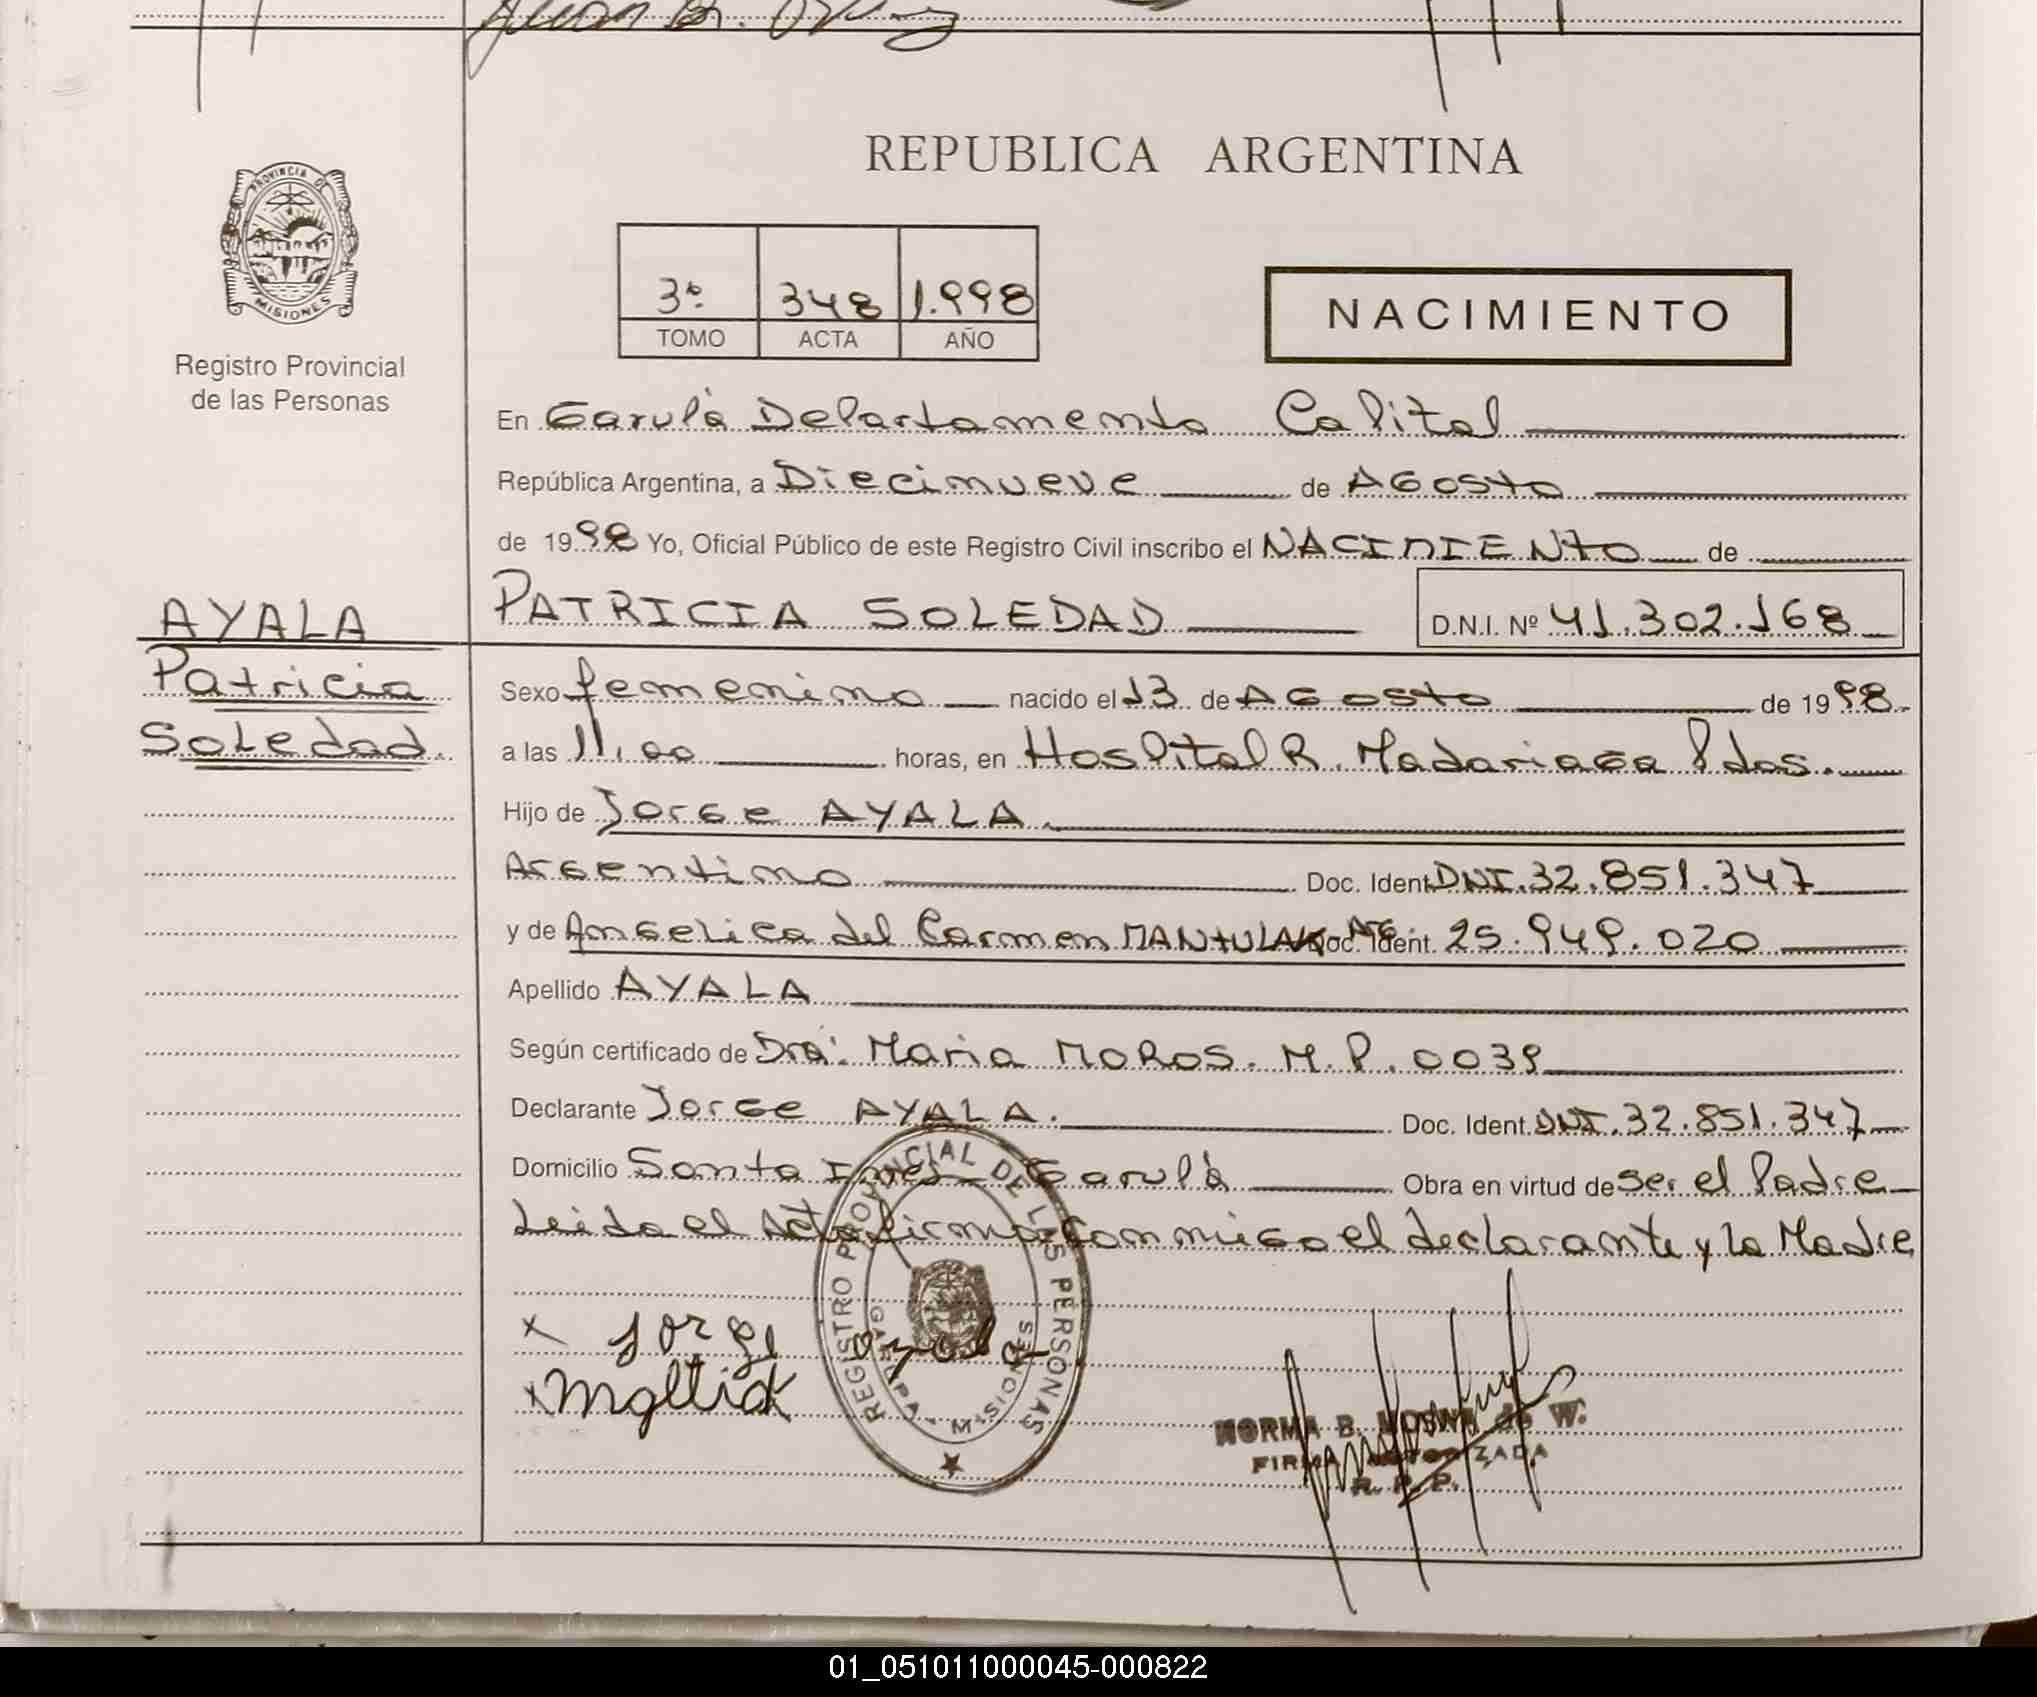 Juan
PROVINCIA DE
MISIONES
Registro Provincial
de las Personas
REPUBLICA ARGENTINA
3º 348 1.998
TOMO ACTA AÑO
NACIMIENTO
En Garupá Departamento Capital
República Argentina, a Diecinueve de AGosto
de 1998 Yo, Oficial Público de este Registro Civil inscribo el NACIMIENto de
PATRICIA SOLEDAD D.N.I. Nº 41.302.168
AYALA
Patricia
Soledad.
Sexo femenino nacido el 13 de AGosto de 1998
a las 11,00 horas, en Hospital R. Madariaga Pdas.
Hijo de Jorge AYALA.
Argentino Doc. Ident. DNI. 32.851.347
y de Angelica del Carmen MANtULAK Doc. Ident. 25.949.020
Apellido AYALA
Según certificado de Dra: Maria MoRoS. M.P. 0039
Declarante Jorge AYALA. Doc. Ident. DNI. 32.851.347
Domicilio Santa Ines - Garupá Obra en virtud de Ser el Padre
Leida el Acta firma conmigo el declarante y la Madre
x Jorge ayala
x
REGISTRO PROVINCIAL DE LAS PERSONAS
GARUPA - MISIONES
NORMA B. de W.
FIRMA AUTORIZADA
R. P. P.
01_051011000045-000822